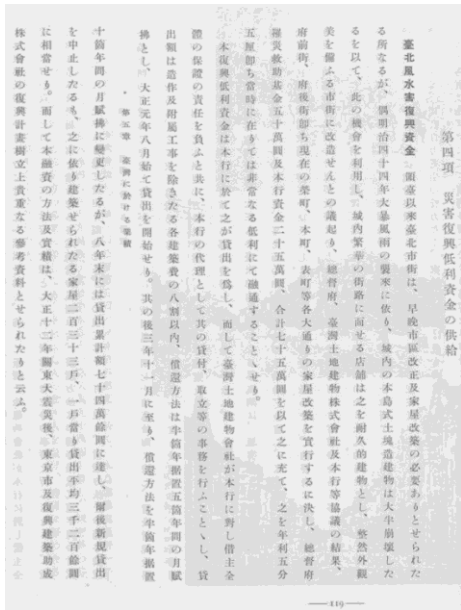 第四項　災害復興低利資金の供給
臺北風水害復興資金　領臺以來臺北市街は、早晩市區改正及家屋改築の必要ありとせられた
る所なるが、偶明治四十四年大暴風雨の襲來に依り、城內の本島式土塊造建物は大半崩壞した
るを以て、此の機會を利用し、城內繁華の街路に面せる店舖は之を耐久的建物とし、整然外觀
美を備ふる市街に改造せんとの議起り、總督府、臺灣土地建物株式會社及本行等協議の結果、
府前街、府後街卽ち現在の榮町、本町、表町等各大通りの家屋改築を實行するに決し、總督府
罹災救助基金五十萬圓及本行資金二十五萬圓、合計七十五萬圓を以て之に充て、之を年利五分
五厘卽ち當時に在りては非常なる低利にて融通することゝせり。
本復興低利資金は本行に於て之が貸出を爲し、而して臺灣土地建物會社が本行に對し借主全
體の保證の責任を負ふと共に、本行の代理として其の貸付、取立等の事務を行ふことゝし、貸
出額は造作及附屬工事を除きたる各建築費の八割以內、償還方法は半箇年据置五箇年間の月賦
拂とし、大正元年八月始て貸出を開始せり。其の後三年十一月に至り、償還方法を半箇年据置
第五章　臺灣に於ける業績
十箇年間の月賦拂に變更したるが、八年末には貸出累計額七十四萬餘圓に達し、爾後新規貸出
を中止したるも、之に依り建築せられたる家屋二百三十三戶、一戶當り貸出平均三千二百餘圓
に相當せり。而して本融資の方法及實績は、大正十二年關東大震災後、東京市及復興建築助成
株式會社の復興計畫樹立上貴重なる參考資料とせられたりと云ふ。
119